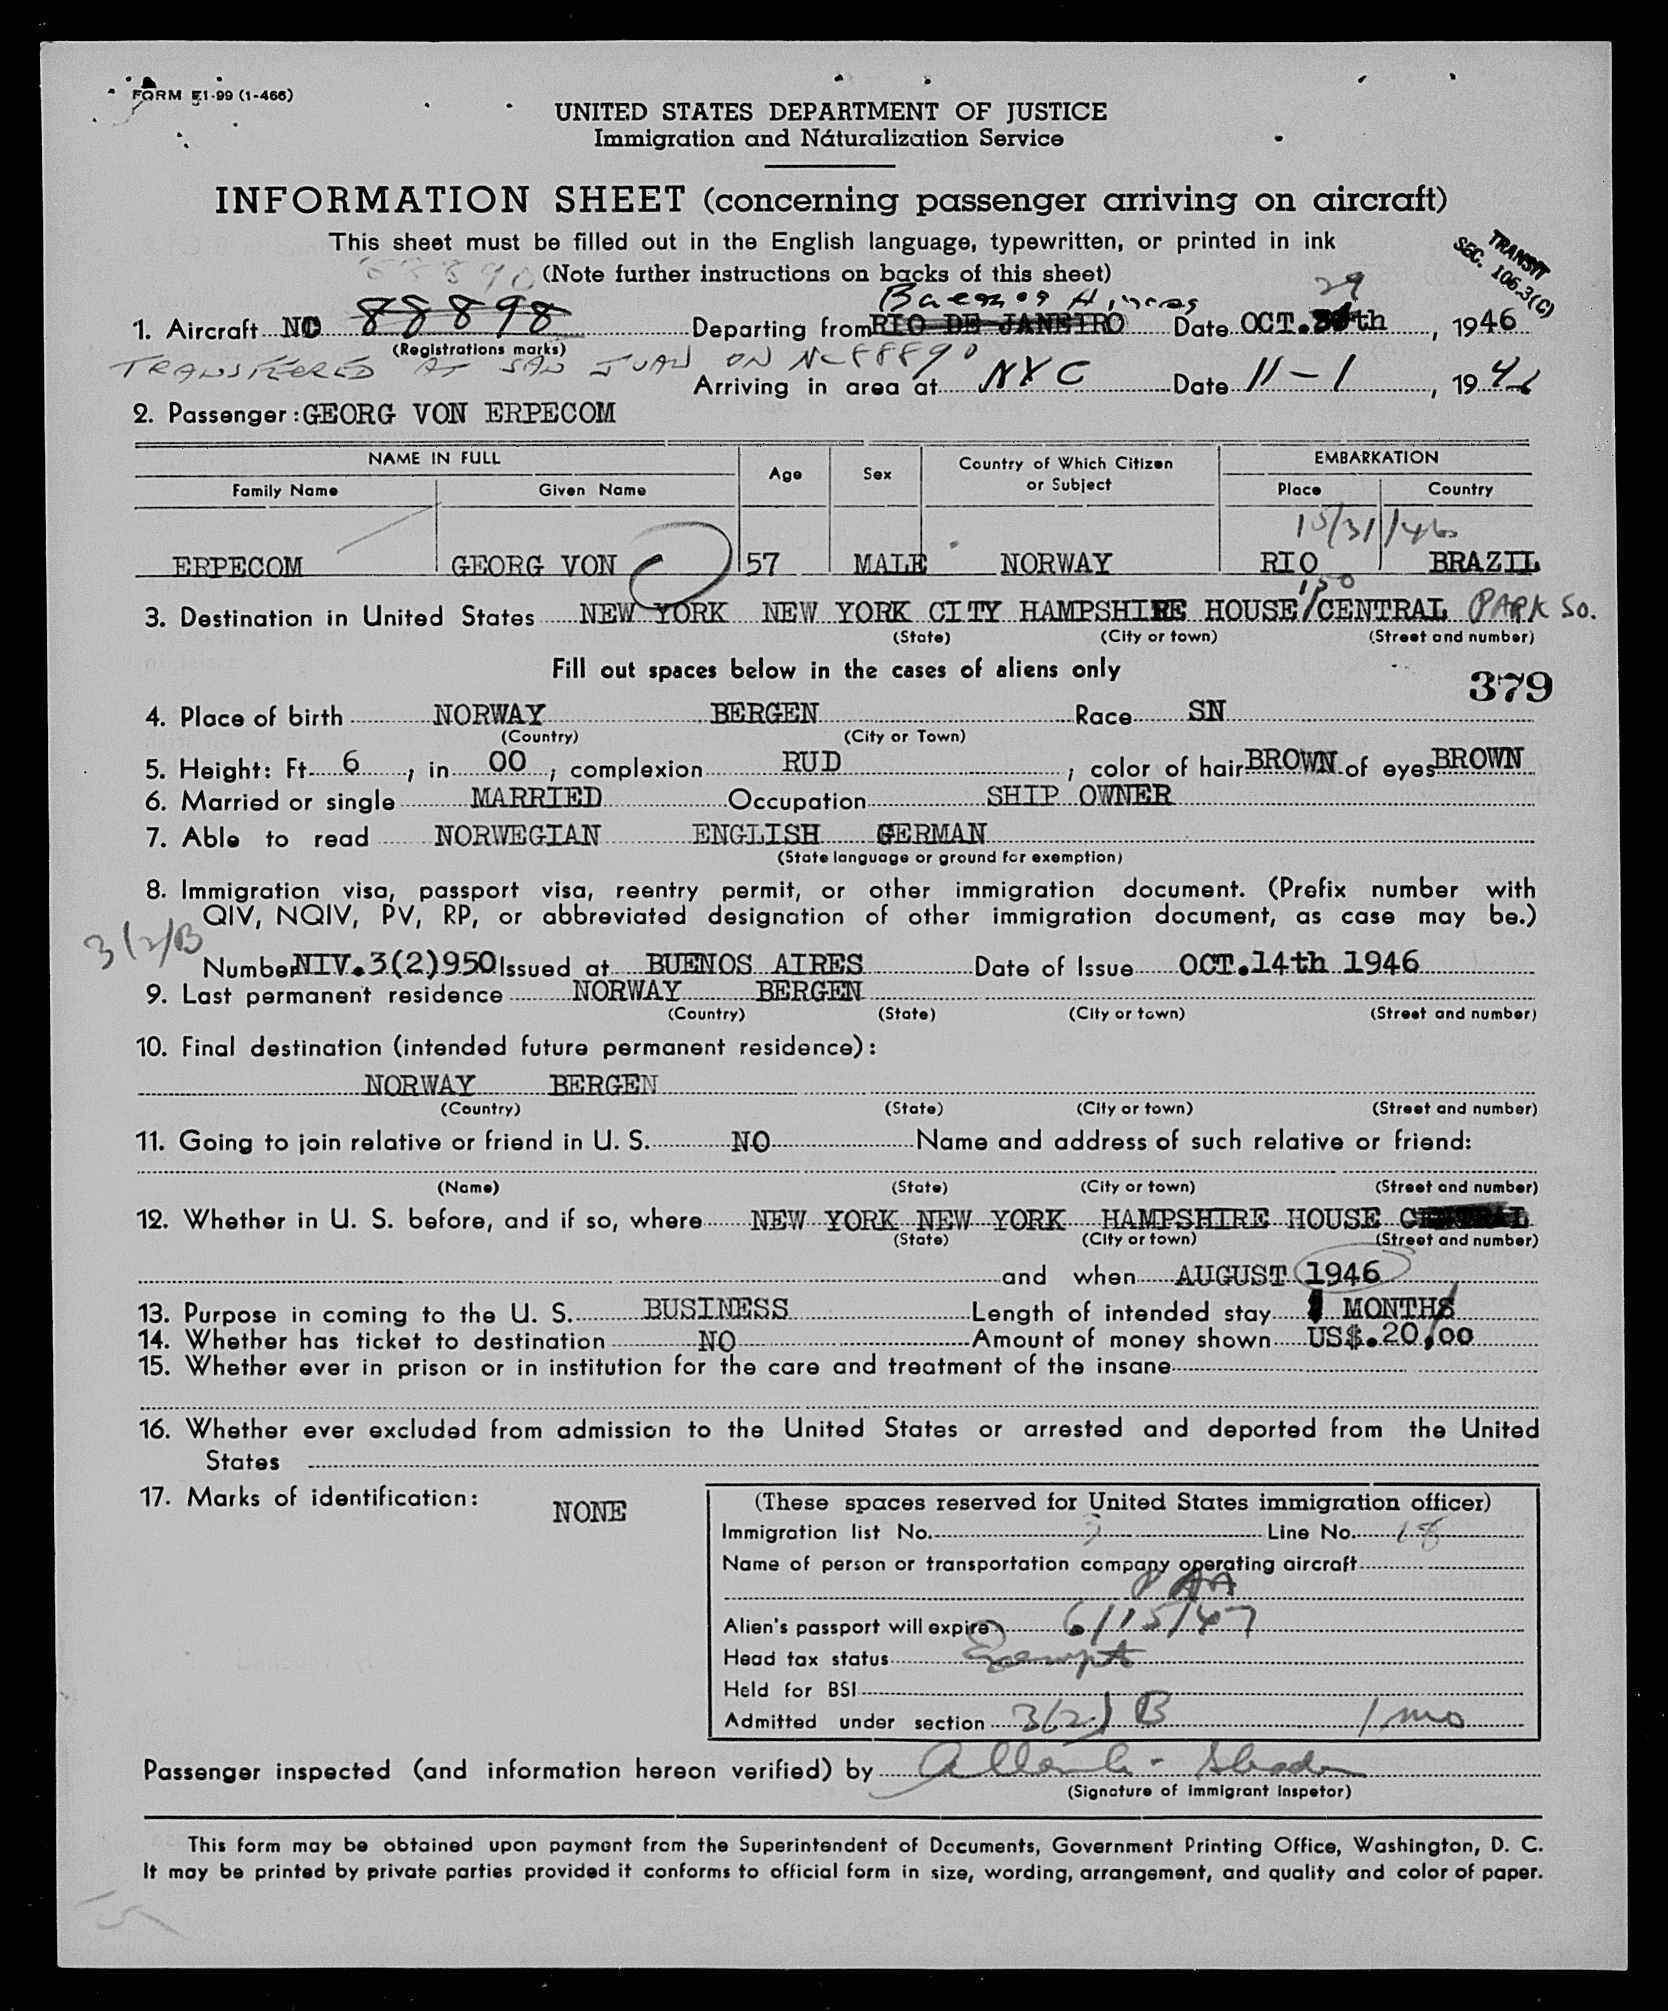 FORM I-99 (1-466)
UNITED STATES DEPARTMENT OF JUSTICE
Immigration and Naturalization Service
INFORMATION SHEET (concerning passenger arriving on aircraft)
This sheet must be filled out in the English language, typewritten, or printed in ink
(Note further instructions on backs of this sheet)
TRANSIT
SEC. 105.3(C)
88890
Buenos Aires 29
1. Aircraft NC 88898 Departing from RIO DE JANEIRO Date OCT. th, 1946
(Registrations marks)
TRANSFERRED AT SAN JUAN ON NC 88890
Arriving in area at NYC Date 11-1, 1946
2. Passenger: GEORG VON ERPECOM
NAME IN FULL Age Sex Country of Which Citizen or Subject EMBARKATION
Family Name Given Name Place Country
10/31/46
ERPECOM GEORG VON 57 MALE NORWAY RIO BRAZIL
150
3. Destination in United States NEW YORK NEW YORK CITY HAMPSHIRE HOUSE/CENTRAL PARK SO.
(State) (City or town) (Street and number)
Fill out spaces below in the cases of aliens only
379
4. Place of birth NORWAY BERGEN Race SN
(Country) (City or Town)
5. Height: Ft. 6, in 00; complexion RUD; color of hair BROWN of eyes BROWN
6. Married or single MARRIED Occupation SHIP OWNER
7. Able to read NORWEGIAN ENGLISH GERMAN
(State language or ground for exemption)
8. Immigration visa, passport visa, reentry permit, or other immigration document. (Prefix number with
QIV, NQIV, PV, RP, or abbreviated designation of other immigration document, as case may be.)
3(2)B
Number NIV.3(2)950 Issued at BUENOS AIRES Date of Issue OCT.14th 1946
9. Last permanent residence NORWAY BERGEN
(Country) (State) (City or town) (Street and number)
10. Final destination (intended future permanent residence):
NORWAY BERGEN
(Country) (State) (City or town) (Street and number)
11. Going to join relative or friend in U. S. NO Name and address of such relative or friend:
(Name) (State) (City or town) (Street and number)
12. Whether in U. S. before, and if so, where NEW YORK NEW YORK HAMPSHIRE HOUSE CENTRAL
(State) (City or town) (Street and number)
and when AUGUST 1946
13. Purpose in coming to the U. S. BUSINESS Length of intended stay 1 MONTHS
14. Whether has ticket to destination NO Amount of money shown US$.20,00
15. Whether ever in prison or in institution for the care and treatment of the insane
16. Whether ever excluded from admission to the United States or arrested and deported from the United
States
17. Marks of identification: NONE
(These spaces reserved for United States immigration officer)
Immigration list No. 3 Line No. 18
Name of person or transportation company operating aircraft
PAA
Alien's passport will expire 6/15/47
Head tax status Exempt
Held for BSI
Admitted under section 3(2)B 1 mo
Passenger inspected (and information hereon verified) by
(Signature of Immigrant Inspetor)
This form may be obtained upon payment from the Superintendent of Documents, Government Printing Office, Washington, D. C.
It may be printed by private parties provided it conforms to official form in size, wording, arrangement, and quality and color of paper.